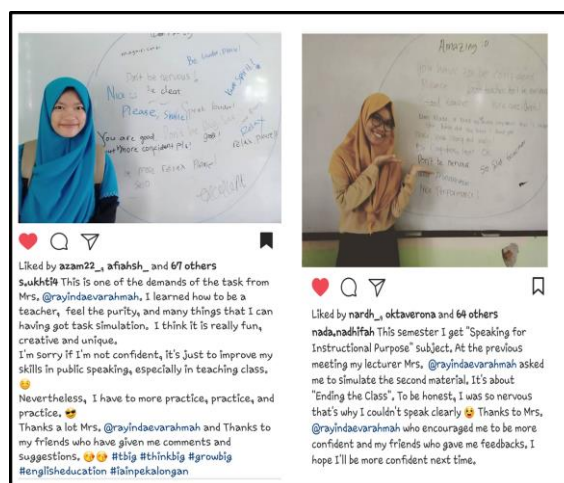 Be louder, please!
Don't be nervous!
Nice be clear
Please, smile!
Speak louder!
You are good
but more confident pls!
good!
Relax
relax please!!
more relax please!
Excellent
Liked by azam22_, afiahsh_ and 67 others
s.ukhti4 This is one of the demands of the task from
Mrs. @rayindaevarahmah. I learned how to be a
teacher, feel the purity, and many things that I can
having got task simulation. I think it is really fun,
creative and unique.
I'm sorry if I'm not confident, it's just to improve my
skills in public speaking, especially in teaching class.
😊
Nevertheless, I have to more practice, practice, and
practice. 😎
Thanks a lot Mrs. @rayindaevarahmah and Thanks to
my friends who have given me comments and
suggestions. 😊😊 #tbig #thinkbig #growbig
#englisheducation #iainpekalongan
Amazing :D
You have to be confident
Please
Don't be nervous
Nice Performance!
Liked by nardh_, oktaverona and 64 others
nada.nadhifah This semester I get "Speaking for
Instructional Purpose" subject. At the previous
meeting my lecturer Mrs. @rayindaevarahmah asked
me to simulate the second material. It's about
"Ending the Class". To be honest, I was so nervous
that's why I couldn't speak clearly 😂 Thanks to Mrs.
@rayindaevarahmah who encouraged me to be more
confident and my friends who gave me feedbacks. I
hope I'll be more confident next time.